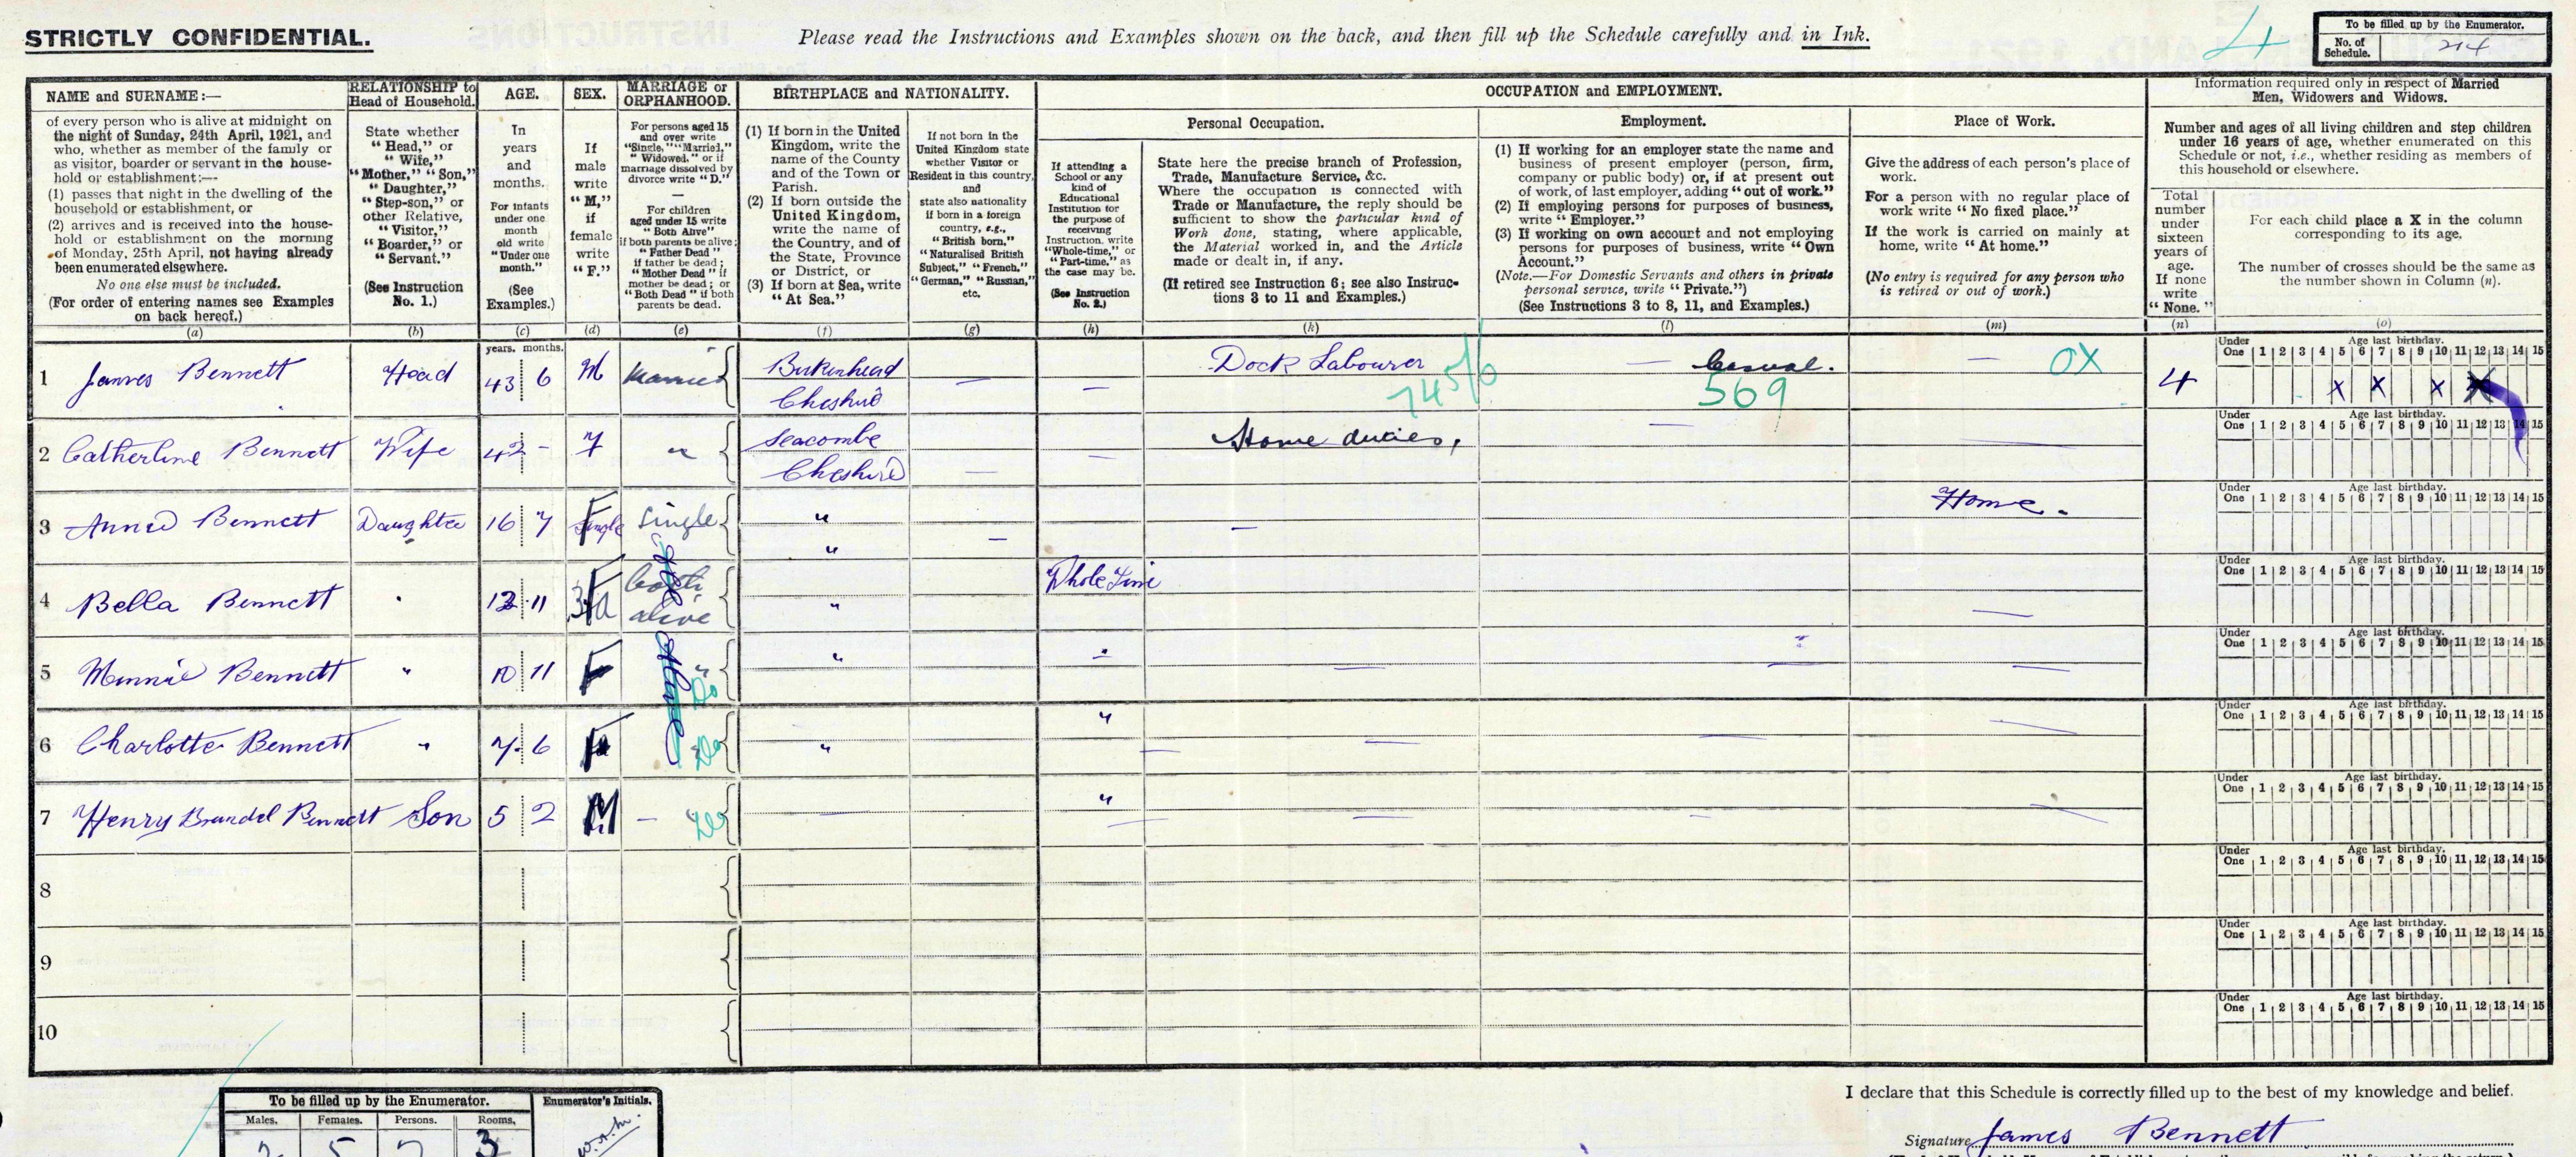 STRICTLY CONFIDENTIAL.
Please read the Instructions and Examples shown on the back, and then fill up the Schedule carefully and in Ink.
4
To be filled up by the Enumerator.
No. of Schedule. 214
NAME and SURNAME:—
of every person who is alive at midnight on
the night of Sunday, 24th April, 1921, and
who, whether as member of the family or
as visitor, boarder or servant in the house-
hold or establishment:—
(1) passes that night in the dwelling of the
household or establishment, or
(2) arrives and is received into the house-
hold or establishment on the morning
of Monday, 25th April, not having already
been enumerated elsewhere.
No one else must be included.
(For order of entering names see Examples
on back hereof.)
(a)
RELATIONSHIP to
Head of Household.
State whether
"Head," or
"Wife,"
"Mother," "Son,"
"Daughter,"
"Step-son," or
other Relative,
"Visitor,"
"Boarder," or
"Servant."
(See Instruction
No. 1.)
(b)
AGE.
In
years
and
months.
For infants
under one
month
old write
"Under one
month."
(See
Examples.)
(c)
SEX.
If
male
write
"M,"
if
female
write
"F."
(d)
MARRIAGE or
ORPHANHOOD.
For persons aged 15
and over write
"Single," "Married,"
"Widowed," or if
marriage dissolved by
divorce write "D."
For children
aged under 15 write
"Both Alive"
if both parents be alive;
"Father Dead"
if father be dead;
"Mother Dead" if
mother be dead; or
"Both Dead" if both
parents be dead.
(e)
BIRTHPLACE and NATIONALITY.
(1) If born in the United
Kingdom, write the
name of the County
and of the Town or
Parish.
(2) If born outside the
United Kingdom,
write the name of
the Country, and of
the State, Province
or District, or
(3) If born at Sea, write
"At Sea."
(f)
If not born in the
United Kingdom state
whether Visitor or
Resident in this country,
and
state also nationality
if born in a foreign
country, e.g.,
"British born,"
"Naturalised British
Subject," "French,"
"German," "Russian,"
etc.
(g)
OCCUPATION and EMPLOYMENT.
Personal Occupation.
If attending a
School or any
kind of
Educational
Institution for
the purpose of
receiving
Instruction, write
"Whole-time," or
"Part-time," as
the case may be.
(See Instruction
No. 2.)
(h)
State here the precise branch of Profession,
Trade, Manufacture Service, &c.
Where the occupation is connected with
Trade or Manufacture, the reply should be
sufficient to show the particular kind of
Work done, stating, where applicable,
the Material worked in, and the Article
made or dealt in, if any.
(If retired see Instruction 6; see also Instruc-
tions 3 to 11 and Examples.)
(k)
Employment.
(1) If working for an employer state the name and
business of present employer (person, firm,
company or public body) or, if at present out
of work, of last employer, adding "out of work."
(2) If employing persons for purposes of business,
write "Employer."
(3) If working on own account and not employing
persons for purposes of business, write "Own
Account."
(Note.—For Domestic Servants and others in private
personal service, write "Private.")
(See Instructions 3 to 8, 11, and Examples.)
(l)
Place of Work.
Give the address of each person's place of
work.
For a person with no regular place of
work write "No fixed place."
If the work is carried on mainly at
home, write "At home."
(No entry is required for any person who
is retired or out of work.)
(m)
Information required only in respect of Married
Men, Widowers and Widows.
Number and ages of all living children and step children
under 16 years of age, whether enumerated on this
Schedule or not, i.e., whether residing as members of
this household or elsewhere.
Total
number
under
sixteen
years of
age.
If none
write
"None."
(n)
For each child place a X in the column
corresponding to its age.
The number of crosses should be the same as
the number shown in Column (n).
(o)
years. months.
1 James Bennett Head 43 6 M Married Birkenhead Cheshire — — Dock Labourer 745/0 — Casual. 569 — OX 4
Under One 1 2 3 4 5 6 7 8 9 10 11 12 13 14 15 Age last birthday.
X X X X
2 Catherine Bennett Wife 42 - F " Seacombe Cheshire — — Home duties, — —
Under One 1 2 3 4 5 6 7 8 9 10 11 12 13 14 15 Age last birthday.
3 Annie Bennett Daughter 16 7 F Single Single " " — — Home.
Under One 1 2 3 4 5 6 7 8 9 10 11 12 13 14 15 Age last birthday.
4 Bella Bennett " 12 11 F both alive " Whole Time —
Under One 1 2 3 4 5 6 7 8 9 10 11 12 13 14 15 Age last birthday.
5 Minnie Bennett " 10 11 F " Do " " — — —
Under One 1 2 3 4 5 6 7 8 9 10 11 12 13 14 15 Age last birthday.
6 Charlotte Bennett " 7 6 F " Do " " — — — —
Under One 1 2 3 4 5 6 7 8 9 10 11 12 13 14 15 Age last birthday.
7 Henry Bennett Son 5 2 M — Do — — " — — — —
Under One 1 2 3 4 5 6 7 8 9 10 11 12 13 14 15 Age last birthday.
8
Under One 1 2 3 4 5 6 7 8 9 10 11 12 13 14 15 Age last birthday.
9
Under One 1 2 3 4 5 6 7 8 9 10 11 12 13 14 15 Age last birthday.
10
Under One 1 2 3 4 5 6 7 8 9 10 11 12 13 14 15 Age last birthday.
To be filled up by the Enumerator.
Males. Females. Persons. Rooms.
2 5 7 3
Enumerator's Initials.
W.A.M.
I declare that this Schedule is correctly filled up to the best of my knowledge and belief.
Signature James Bennett